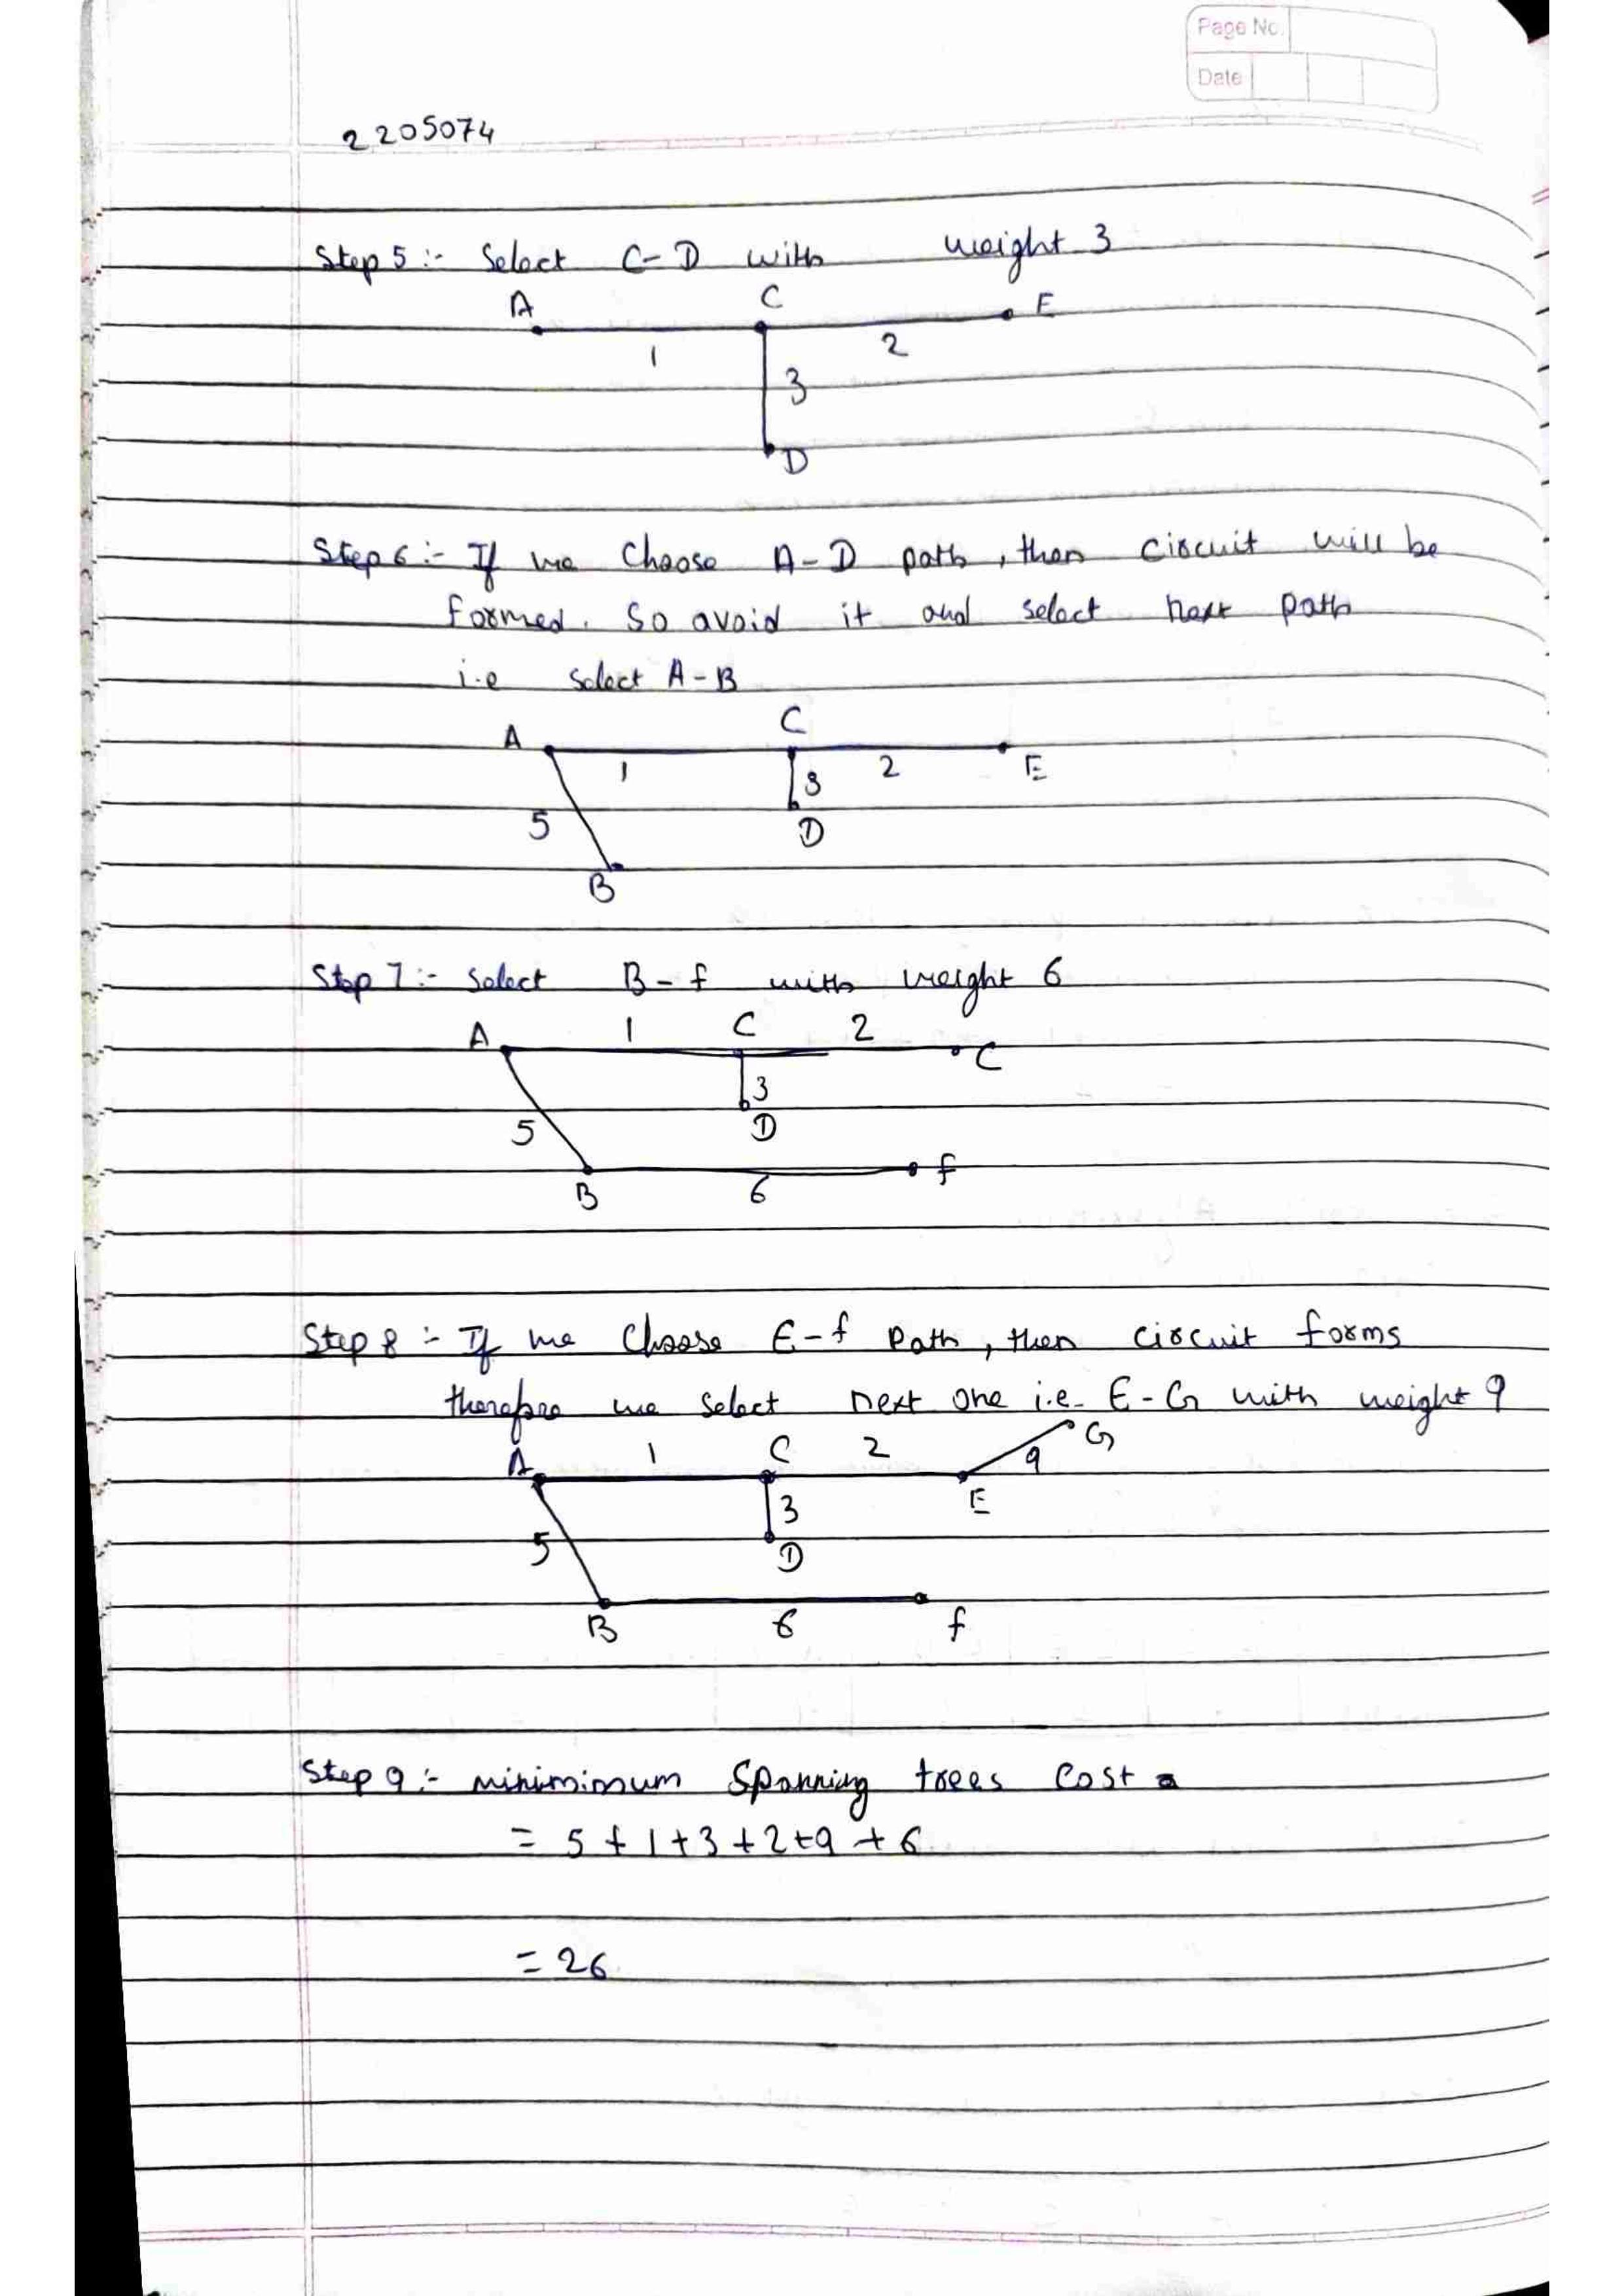 Page No.
Date
2205074
Step 5 :- Select C-D with weight 3
A C E
1 2
3
D
Step 6 :- If we Choose A-D path, then circuit will be
formed. So avoid it and select next path
i.e select A-B
C
A
1 2 E
3
5 D
B
Step 7 :- Select B-f with weight 6
A 1 C 2
C
3
5 D
f
B 6
Step 8 :- If we Choose E-f Path, then circuit forms
therefore we select next one i.e. E-G with weight 9
A 1 C 2 9 G
E
3
5 D
B 6 f
Step 9 :- minimimum Spanning trees cost
= 5 + 1 + 3 + 2 + 9 + 6
= 26